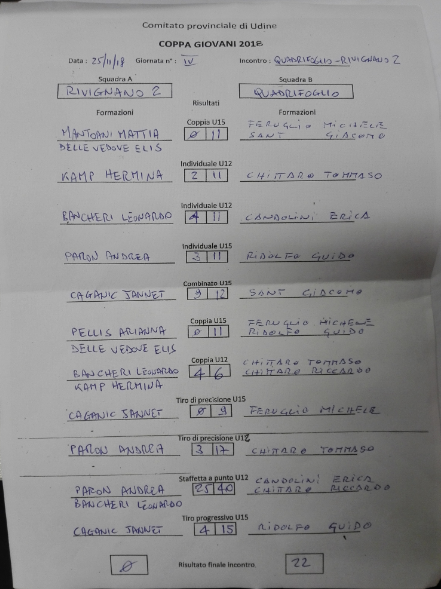 Comitato provinciale di Udine
COPPA GIOVANI 2018
Data : 25/11/18 Giornata n° : IV Incontro : QUADRIFOGLIO-RIVIGNANO 2
Squadra A Squadra B
RIVIGNANO 2 QUADRIFOGLIO
Risultati
Formazioni Formazioni
Coppia U15
MANTOANI MATTIA 0 11 FERUGLIO MICHELE
DELLE VEDOVE ELIS SANT GIACOMO
Individuale U12
KAMP HERMINA 2 11 CHITTARO TOMMASO
Individuale U12
BANCHERI LEONARDO 4 11 CANDOLINI ERICA
Individuale U15
PARON ANDREA 3 11 RIDOLFO GUIDO
Combinato U15
CAGANIC JANNET 9 12 SANT GIACOMO
Coppia U15
PELLIS ARIANNA 0 11 FERUGLIO MICHELE
DELLE VEDOVE ELIS RIDOLFO GUIDO
Coppia U12
BANCHERI LEONARDO 4 6 CHITTARO TOMMASO
KAMP HERMINA CHITTARO RICCARDO
Tiro di precisione U15
CAGANIC JANNET 0 9 FERUGLIO MICHELE
Tiro di precisione U12
PARON ANDREA 3 17 CHITTARO TOMMASO
Staffetta a punto U12
PARON ANDREA 25 40 CANDOLINI ERICA
BANCHERI LEONARDO CHITTARO RICCARDO
Tiro progressivo U15
CAGANIC JANNET 4 15 RIDOLFO GUIDO
0 Risultato finale incontro 22